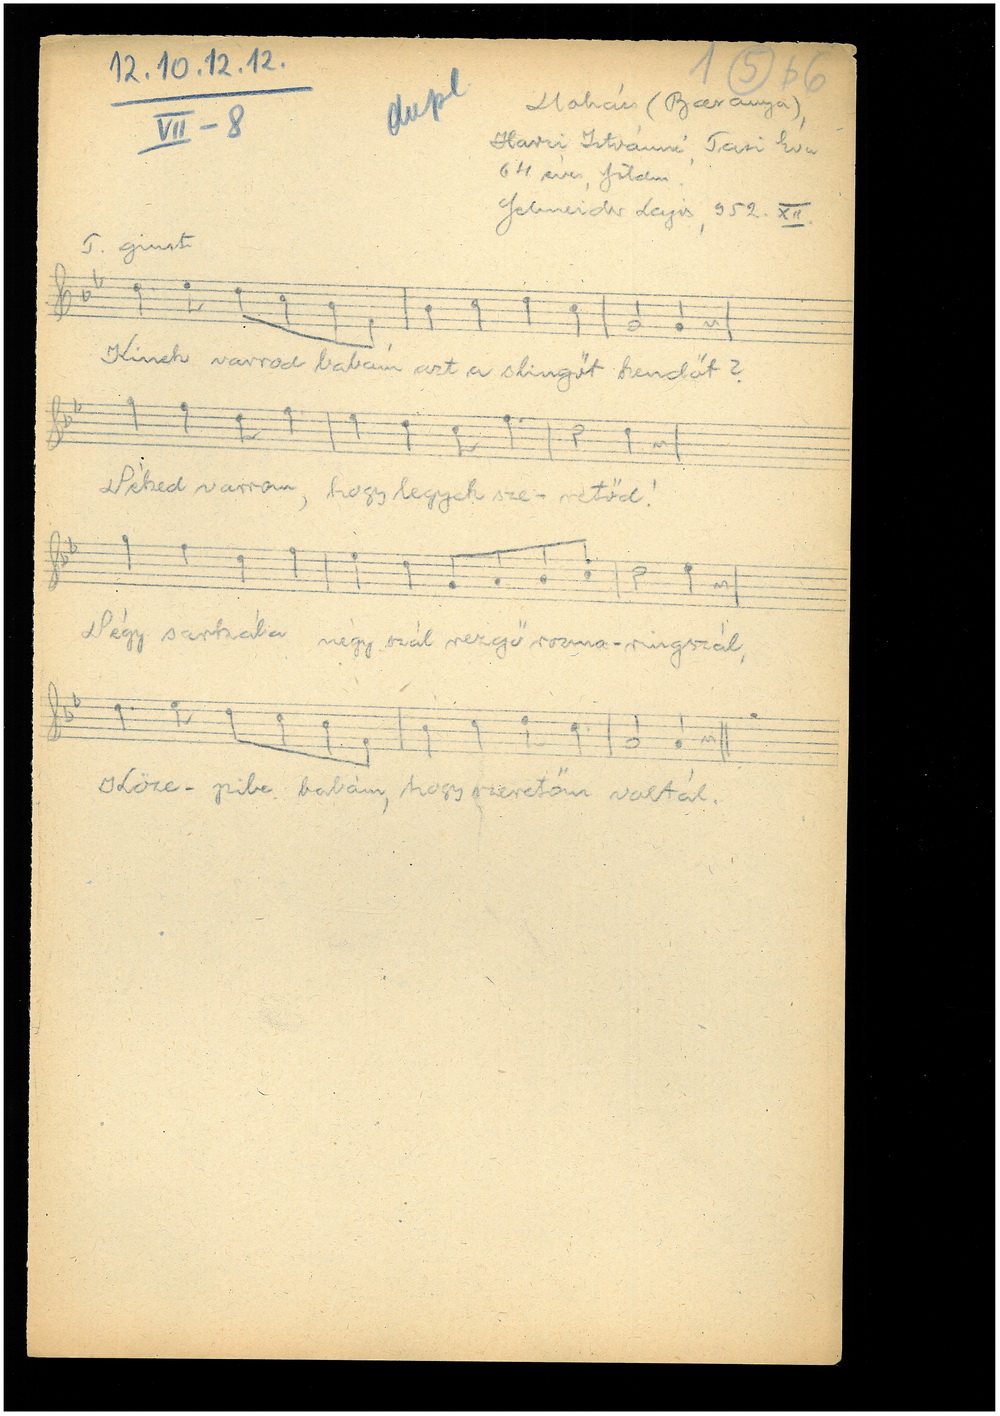 12.10.12.12.
VII - 8
dupl
1 (5) b6
Mohács (Baranya),
István
64 éves, földm.
Schneider Lajos, 952. XII.
T. giusto
Kinek varrod babám azt a slingőt kendőt?
Néked varrom, hogy legyek sze- retőd!
Négy sarkába négy szál rezgő rozma-ringszál,
Köze- pibe babám, hogy szeretőm voltál.